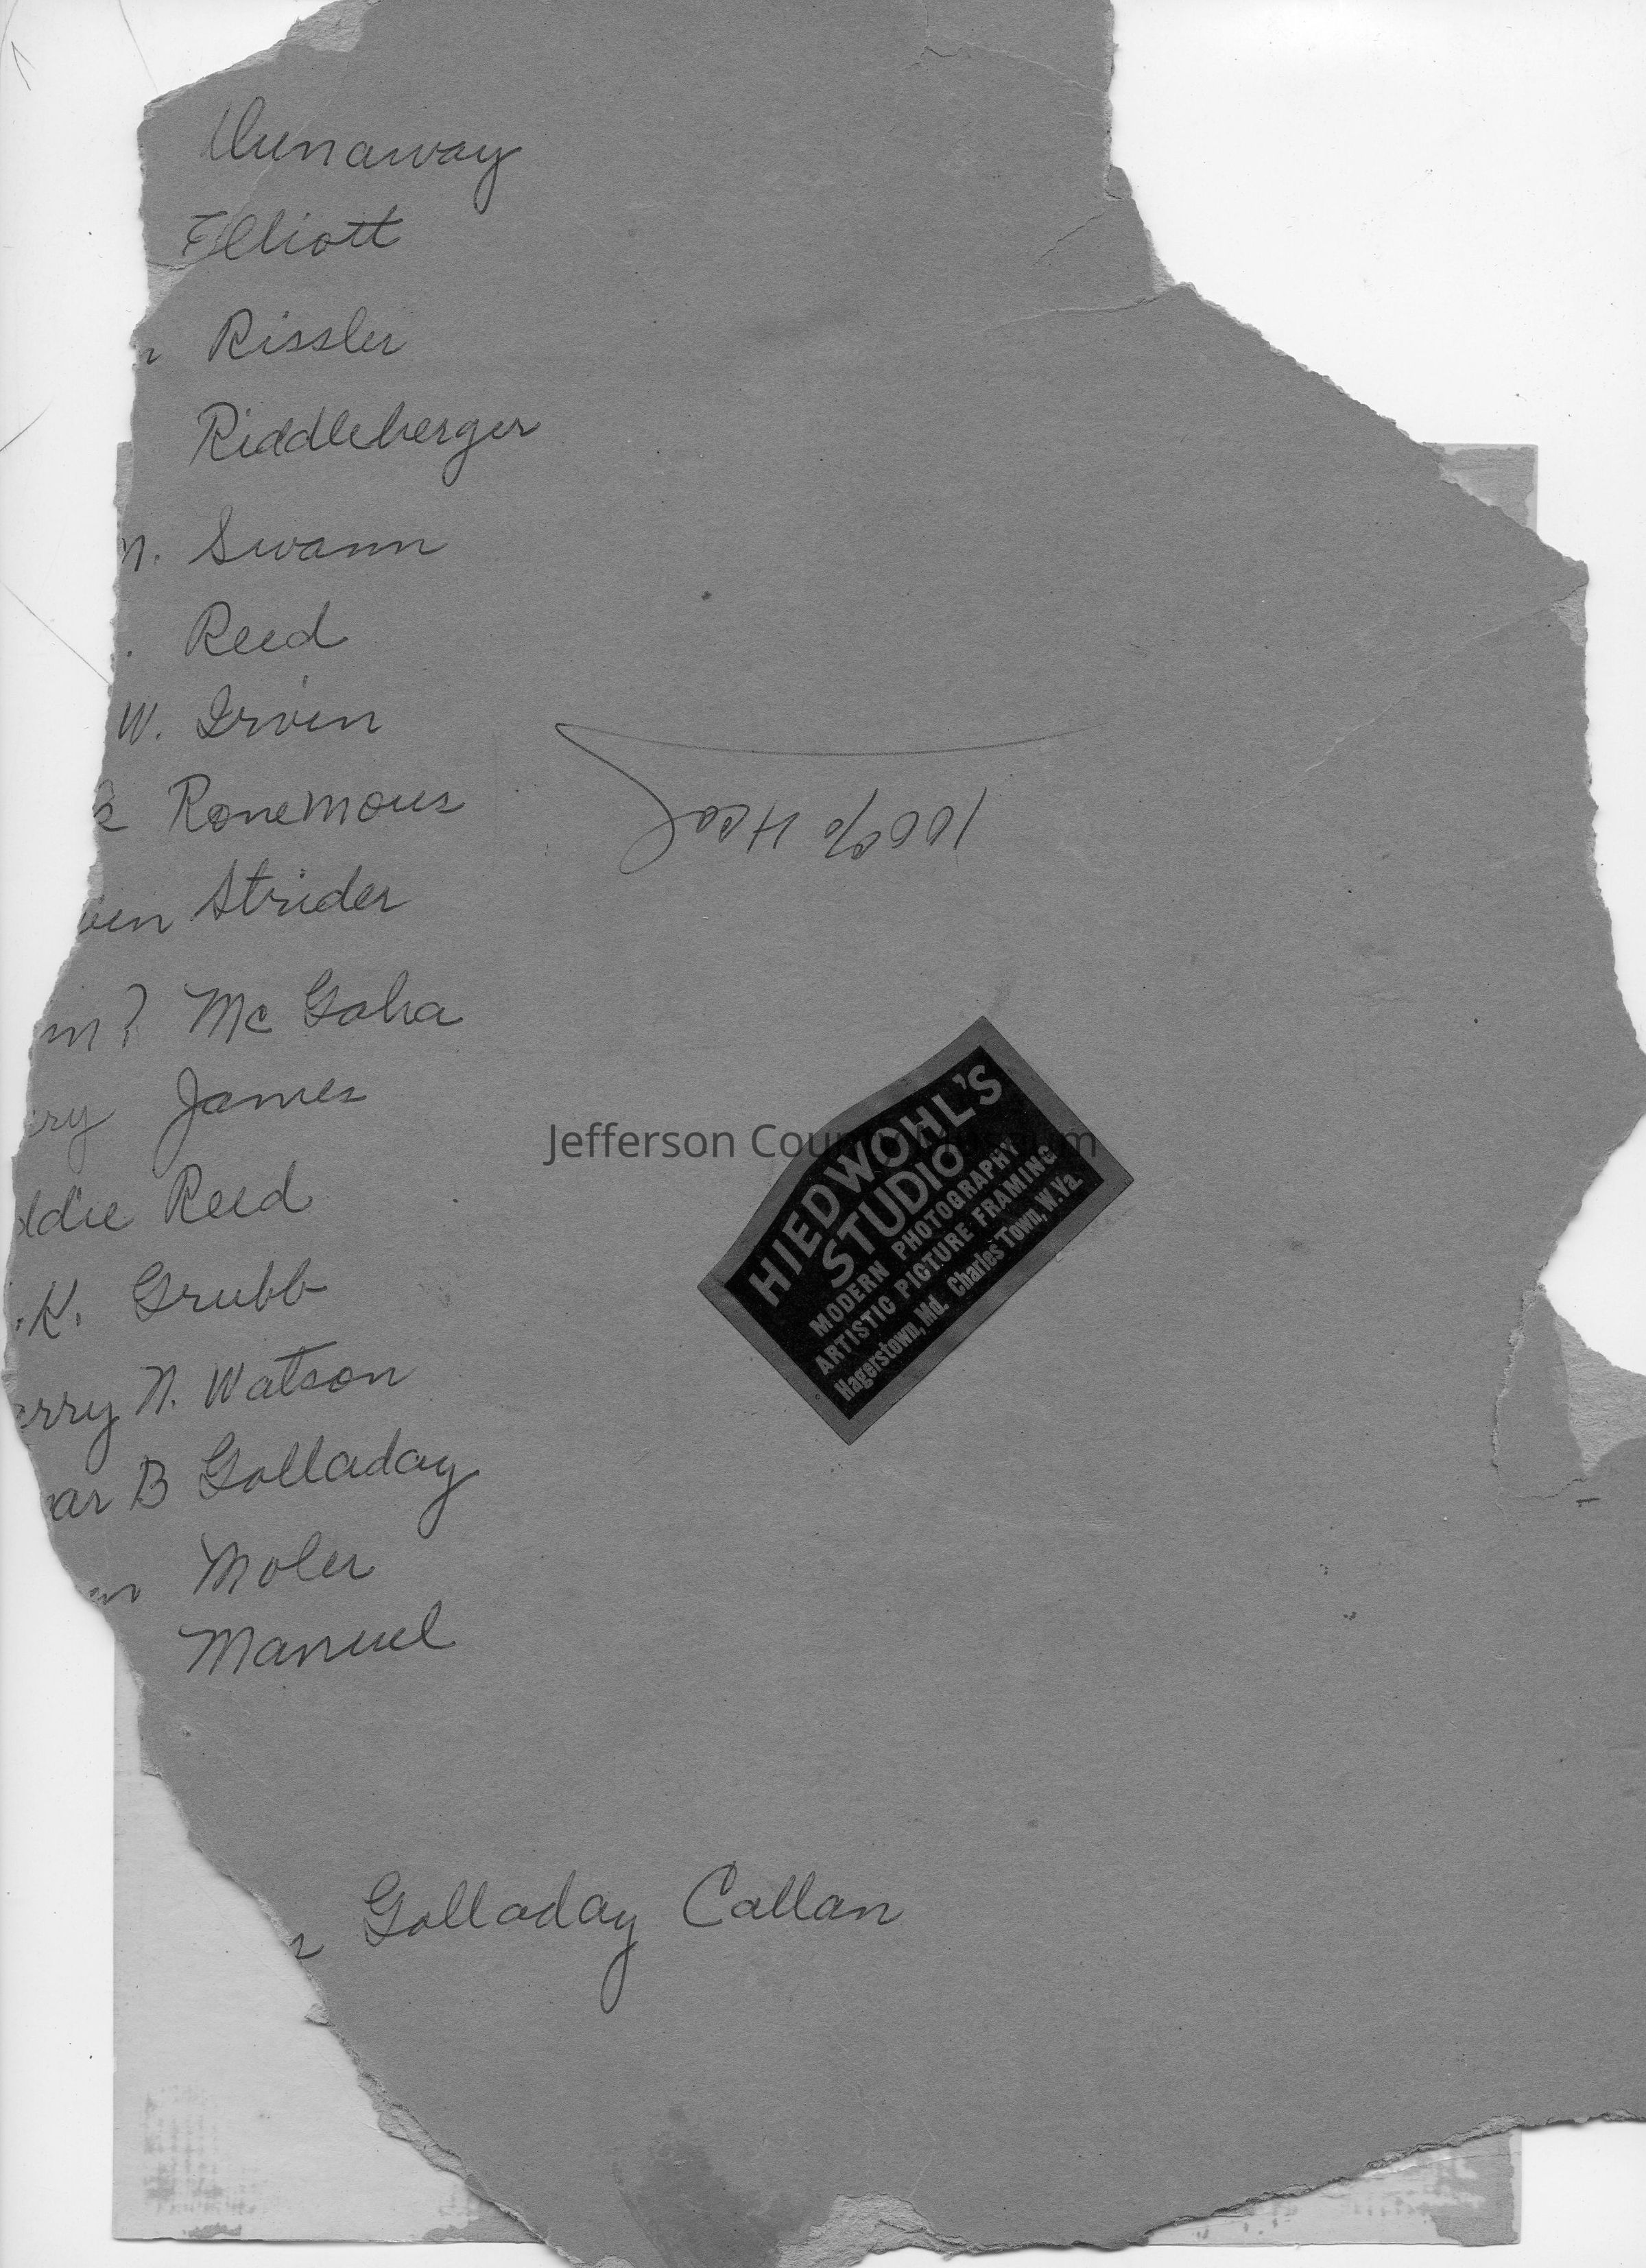 Dunaway
Elliott
Rissler
Riddleberger
n. Swann
. Reed
W. Irvin
Ronemous
Strider
m? McGaha
ry James
ddie Reed
.K. Grubb
erry N. Watson
ar B Golladay
Moler
Manuel
100%
HIEDWOHL'S
STUDIO
MODERN PHOTOGRAPHY
ARTISTIC PICTURE FRAMING
Hagerstown, Md. Charles Town, W.Va.
Jefferson County Museum
Golladay Callan